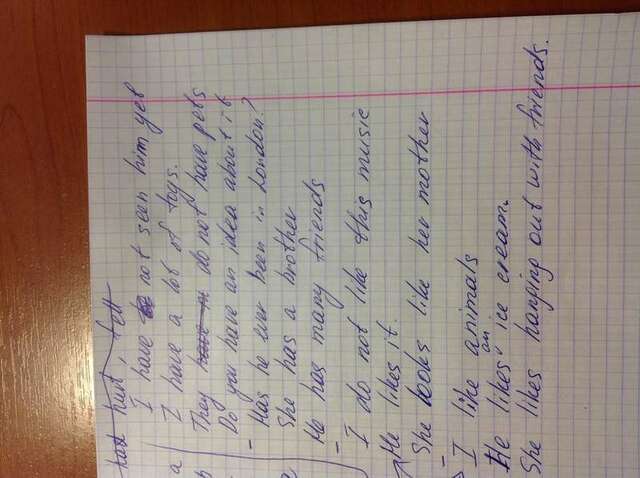 had hurt, fell
I have not seen him yet
a I have a lot of toys.
They have do not have pets
Do you have an idea about it
- Has he ever been in London?
She has a brother
He has many friends
- I do not like this music
He likes it.
She looks like her mother
- I like animals
He likes an ice cream.
She likes hanging out with friends.